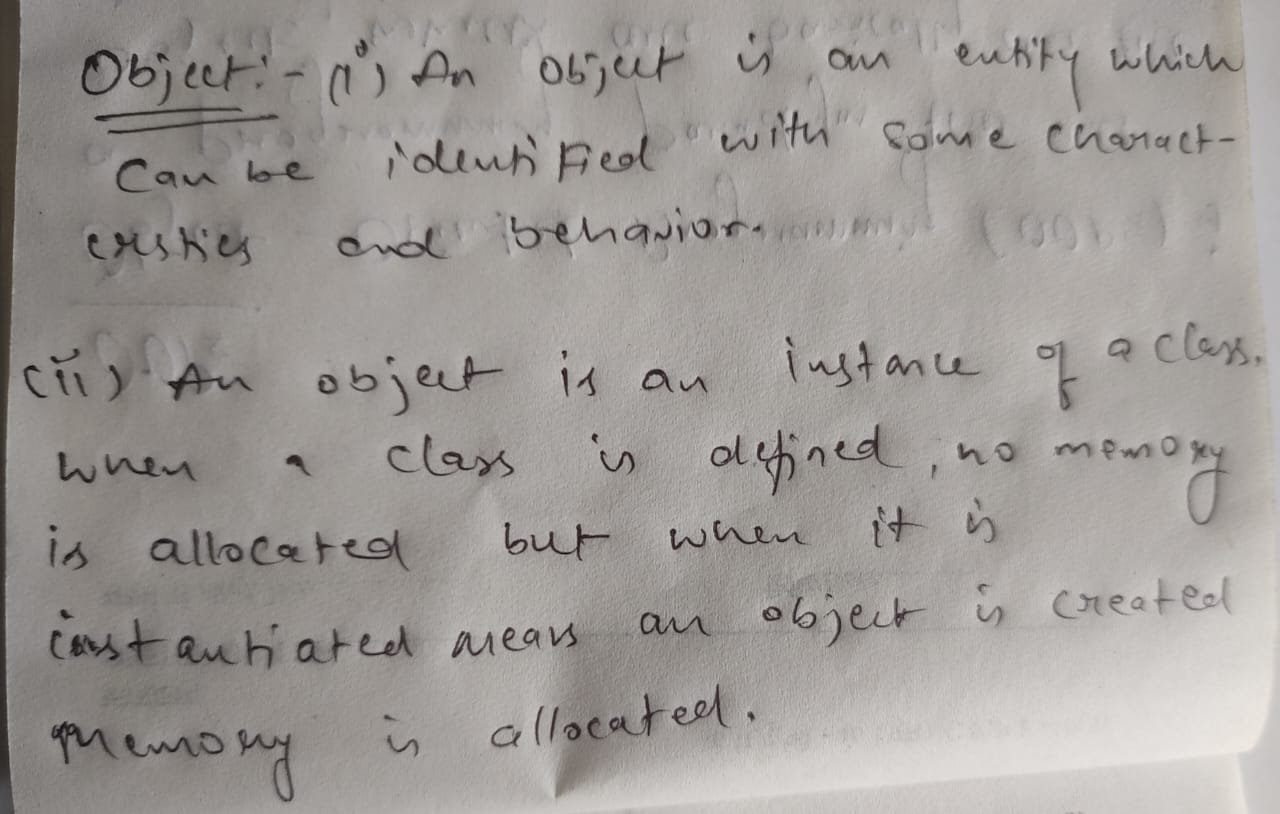 Object:- (i) An object is an entity which
Can be identified with some charact-
eristics and behavior.
(ii) An object is an instance of a class.
when a class is defined, no memory
is allocated but when it is
instantiated means an object is created
memory is allocated.